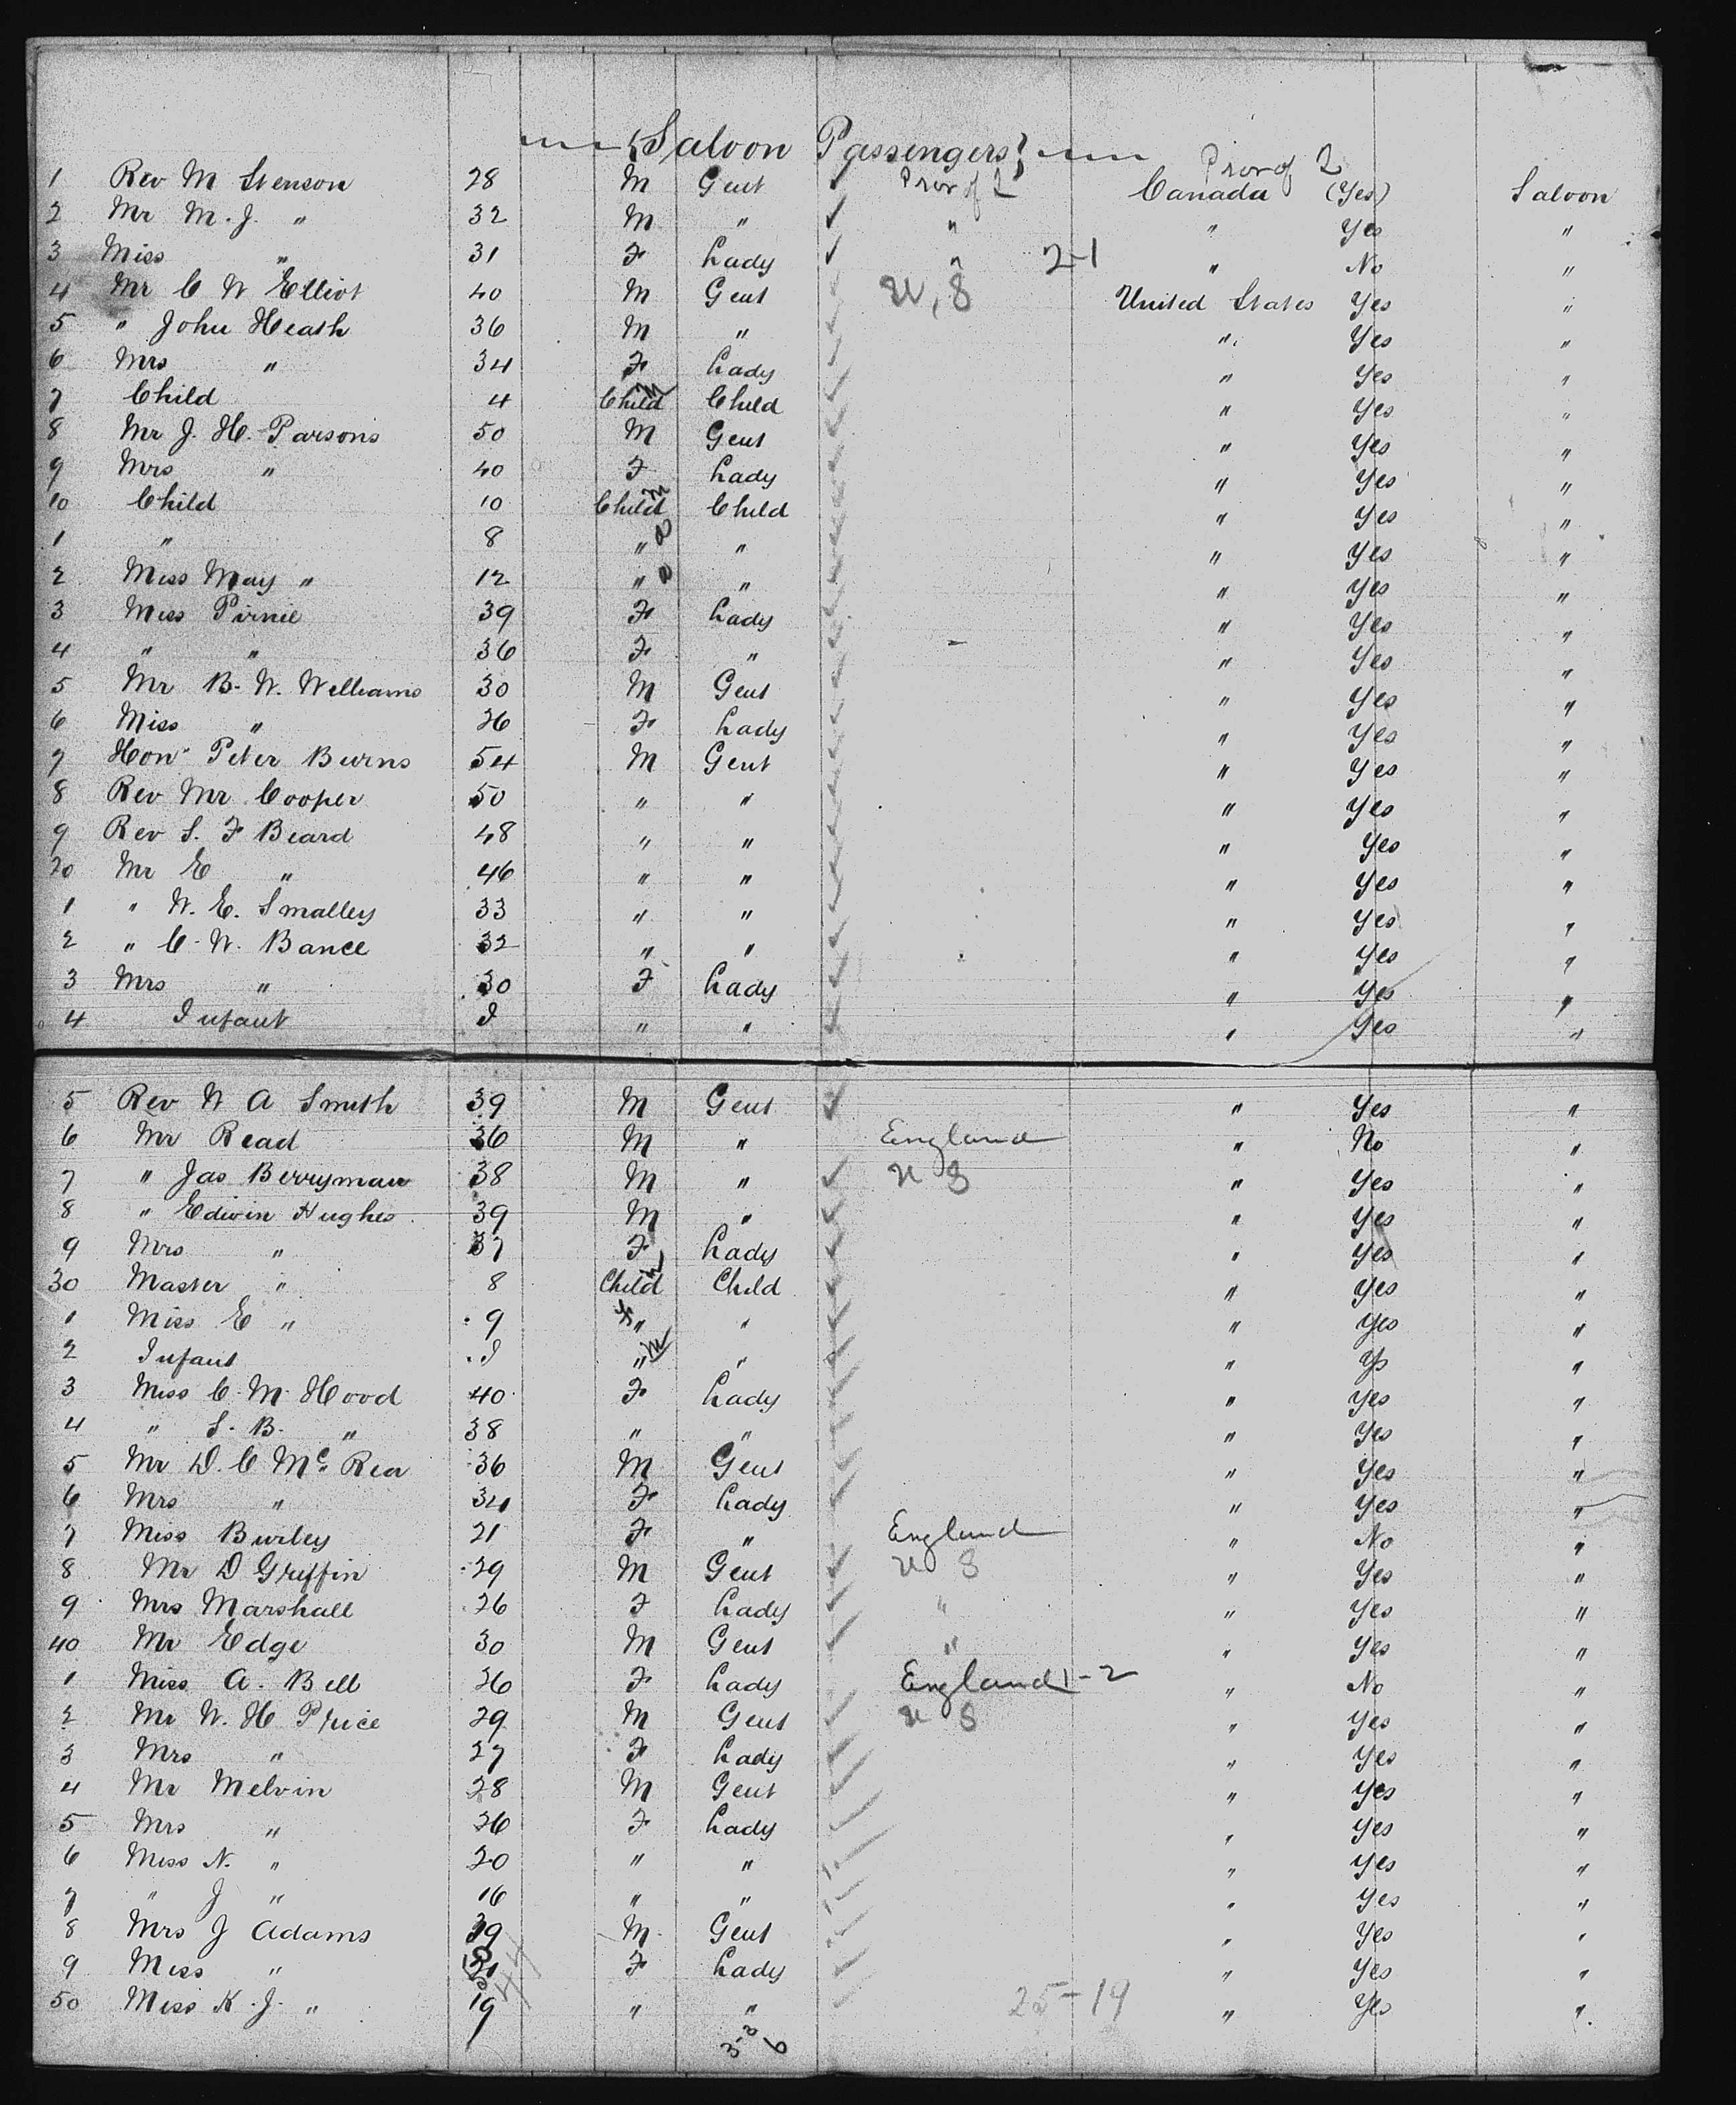 Saloon Passengers
Prov of 2
1 Rev M Stenson 28 M Gent Prov of 2 Canada (Yes) Saloon
2 Mr M. J. " 32 M " " " Yes "
3 Miss " 31 F Lady " 2-1 " No "
4 Mr C W Elliot 40 M Gent U, S United States Yes "
5 " John Heath 36 M " " Yes "
6 Mrs " 34 F Lady " Yes "
7 Child 4 Child m Child " Yes "
8 Mr J. H. Parsons 50 M Gent " Yes "
9 Mrs " 40 F Lady " Yes "
10 Child 10 Child m Child " Yes "
1 " 8 " " " Yes "
2 Miss May " 12 " " " Yes "
3 Miss Pirnie 39 F Lady " Yes "
4 " " 36 F " " Yes "
5 Mr B. W. Williams 30 M Gent " Yes "
6 Miss " 26 F Lady " Yes "
7 Hon Peter Burns 54 M Gent " Yes "
8 Rev Mr Cooper 50 " " " Yes "
9 Rev S. F Beard 48 " " " Yes "
20 Mr E " 46 " " " Yes "
1 " W. E. Smalley 33 " " " Yes "
2 " C. W. Bance 32 " " " Yes "
3 Mrs " 30 F Lady " Yes "
4 Infant I " " " Yes "
5 Rev W A Smith 39 M Gent " Yes "
6 Mr Read 36 M " England " No "
7 " Jas Berryman 38 M " U S " Yes "
8 " Edwin Hughes 39 M " " Yes "
9 Mrs " 37 F Lady " Yes "
30 Master " 8 Child m Child " Yes "
1 Miss E " 9 f " " " Yes "
2 Infant I " m " " Ys "
3 Miss C. M. Hood 40 F Lady " Yes "
4 " S. B. " 38 " " " Yes "
5 Mr D. C Mc Rea 36 M Gent " Yes "
6 Mrs " 34 F Lady " Yes "
7 Miss Burley 21 F " England " No "
8 Mr D Griffin 29 M Gent U S " Yes "
9 Mrs Marshall 26 F Lady " " Yes "
40 Mr Edge 30 M Gent " " Yes "
1 Miss A. Bell 26 F Lady England 1-2 " No "
2 Mr W. H Price 29 M Gent U S " Yes "
3 Mrs " 27 F Lady " Yes "
4 Mr Melvin 28 M Gent " Yes "
5 Mrs " 26 F Lady " Yes "
6 Miss N. " 20 " " " Yes "
7 " J " 16 " " " Yes "
8 Mrs J Adams 39 M Gent " Yes "
9 Miss " F Lady " Yes "
50 Miss K. J. " 19 " " 25-19 " Yes "